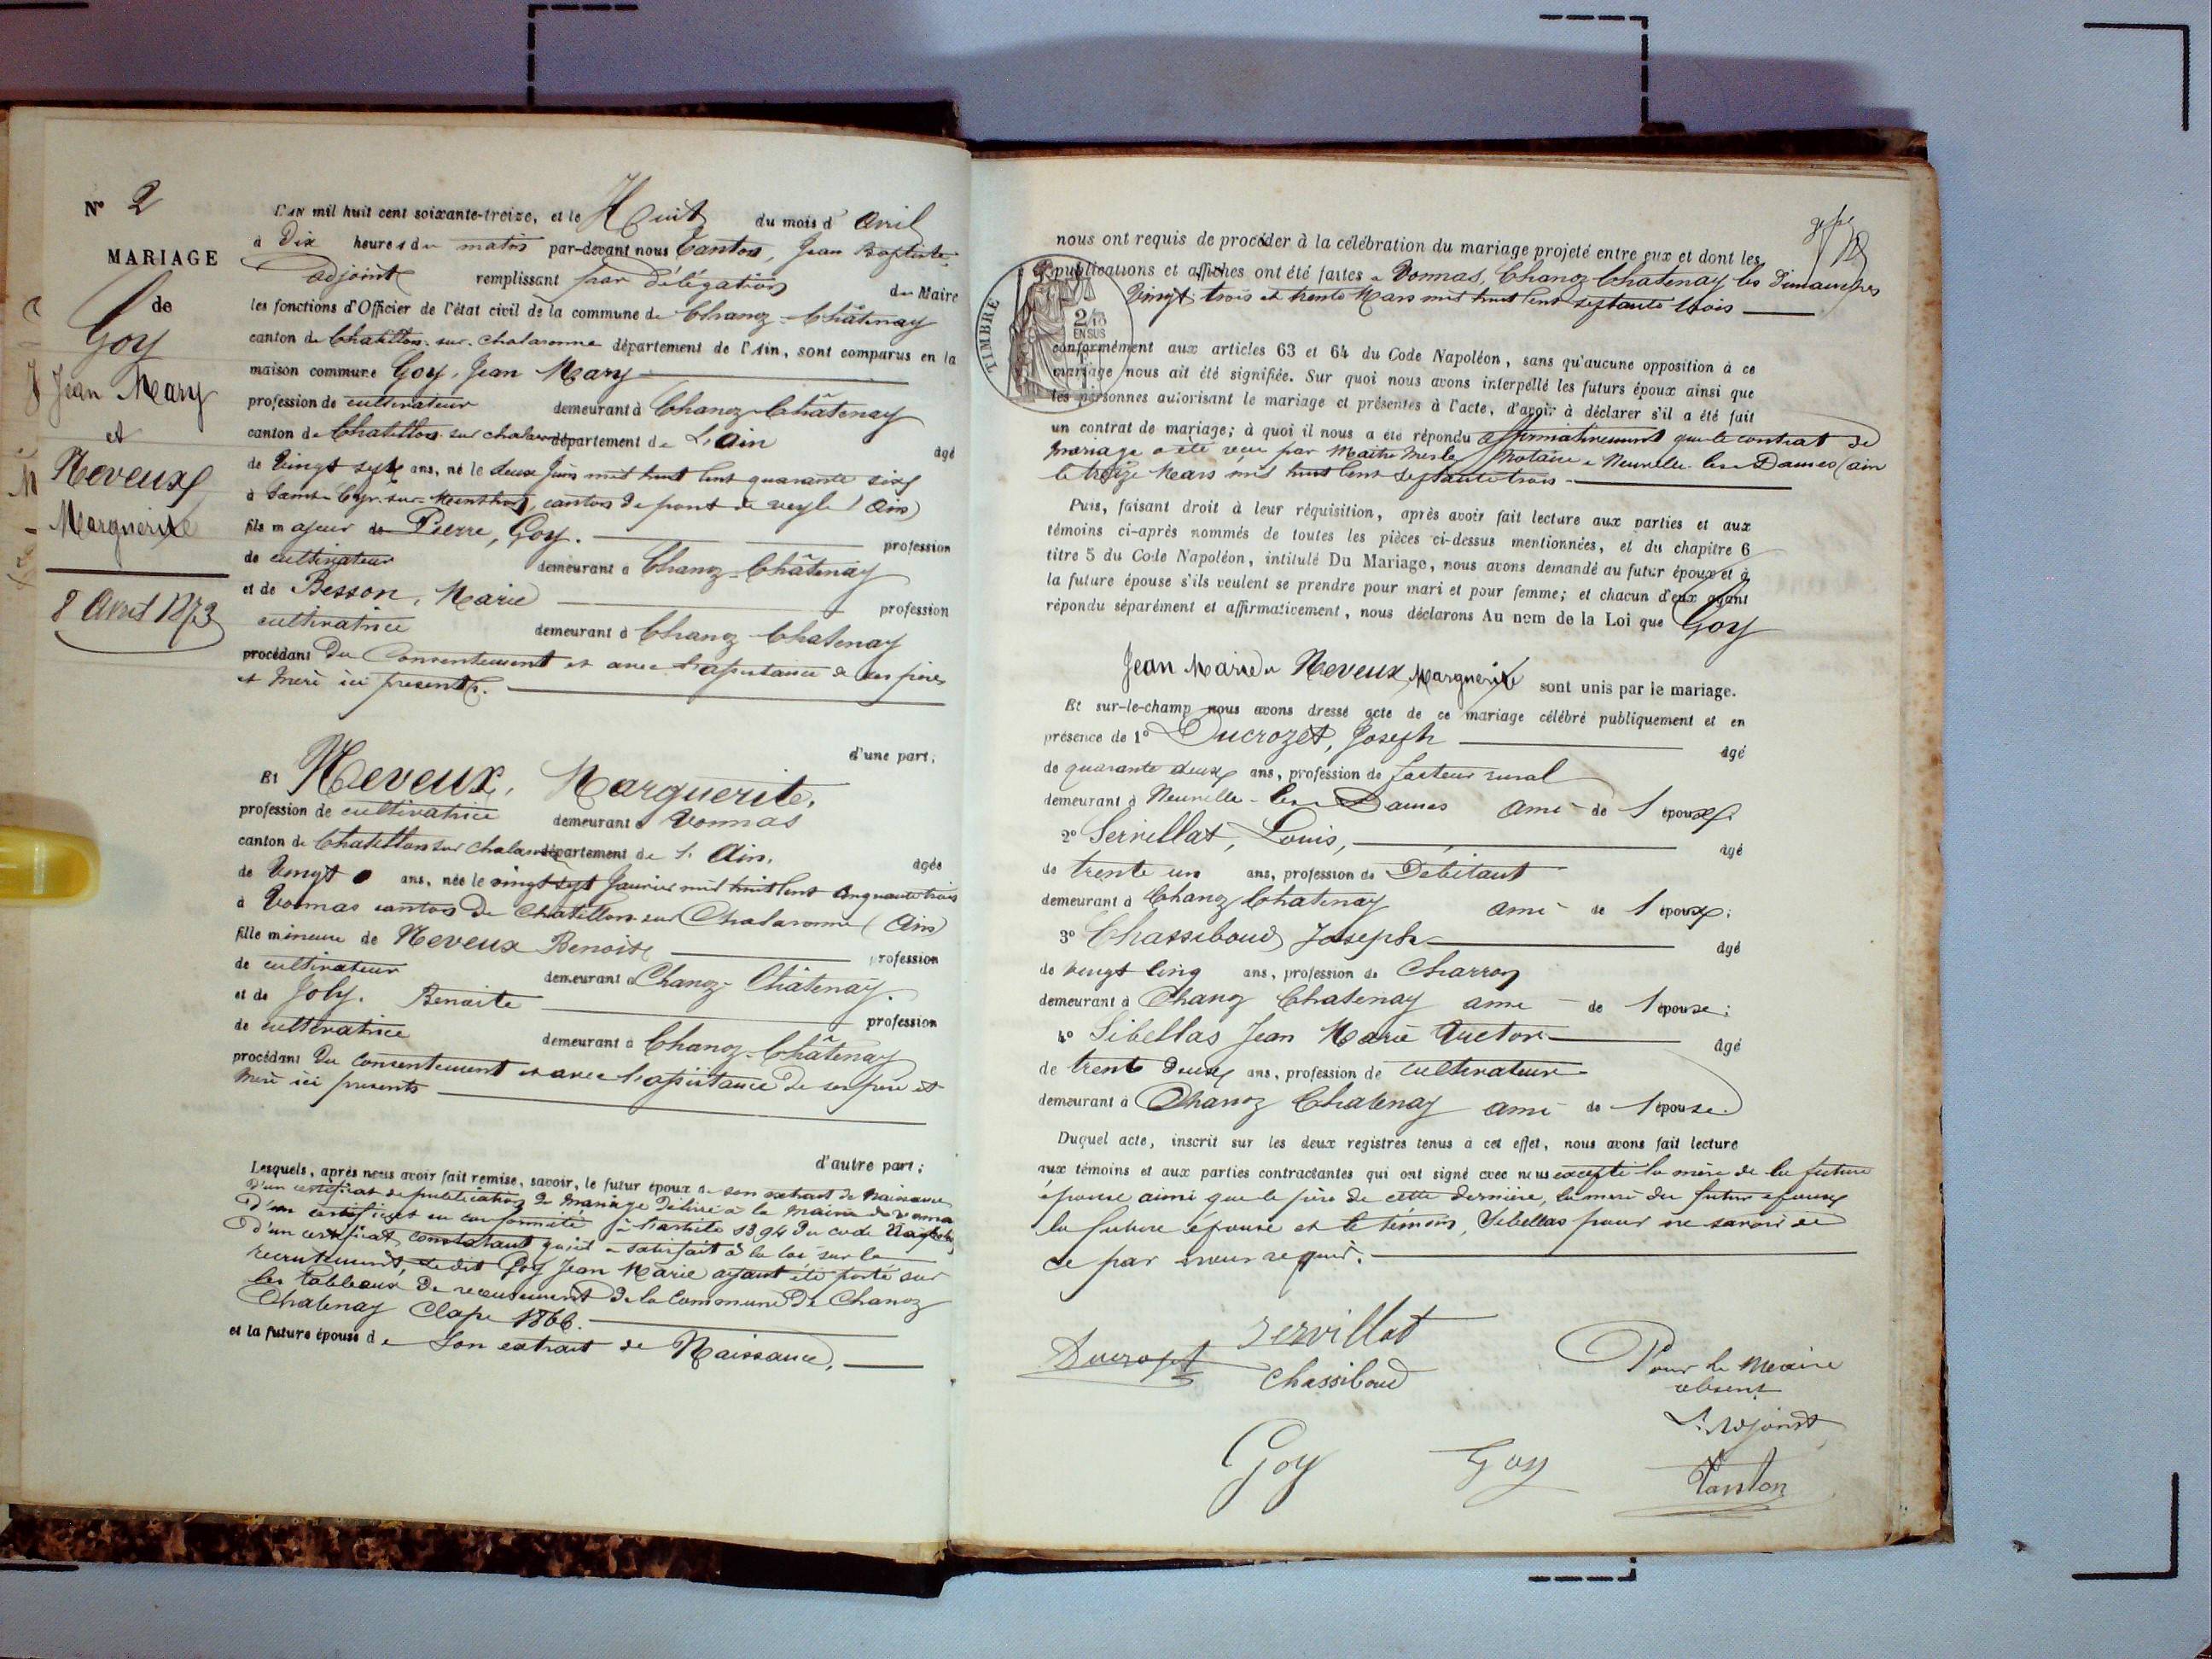 N° 2
MARIAGE
de
Goy
Jean Mary
et
Neveux
Marguerite
8 Avril 1873
L'AN mil huit cent soixante-treize, et le Huit du mois d' Avril
à Dix heures du matin par-devant nous Tanton, Jean Baptiste
adjoint remplissant par délégation du Maire
les fonctions d'Officier de l'état civil de la commune de Chanoz-Châtenay
canton de Chatillon-sur-chalaronne département de l'Ain, sont comparus en la
maison commune Goy, Jean Mary
profession de cultivateur demeurant à Chanoz-Châtenay
canton de Chatillon sur chalaronne département de L'Ain âgé
de Vingt six ans, né le deux Juin mil huit Cent quarante six
à Saint-Cyr-sur-Menthon, canton de pont de veyle (Ain)
fils majeur de Pierre, Goy. profession
de cultivateur demeurant à Chanoz-Châtenay
et de Besson, Marie profession
cultivatrice demeurant à Chanoz-Chatenay
procédant Du Consentement et avec l'assistance de ses père
et Mère ici présents.
d'une part;
Et Neveux, Marguerite,
profession de cultivatrice demeurant à Vonnas
canton de Chatillon sur chalaronne département de l'Ain. âgée
de Vingt ans, née le vingt sept Janvier mil huit Cent Cinquante trois
à Vonnas canton De Chatillon-sur Chalaronne (Ain)
fille mineure de Neveux Benoit profession
de cultivateur demeurant à Chanoz-Châtenay.
et de Joly. Benoite profession
de cultivatrice demeurant à Chanoz-Châtenay
procédant Du Consentement et avec l'assistance De son père et
Mère ici présents
d'autre part;
Lesquels, après nous avoir fait remise, savoir, le futur époux de son extrait de Naissance
D'un certificat de publication De Mariage Délivré à la Mairie de Vonnas
D'un certificat en conformité à l'article 1394 Du code
D'un certificat constatant qu'il a satisfait à la loi sur le
recrutement, Le dit Goy Jean Marie ayant été porté sur
les tableaux De recensement De la Commune De Chanoz
Chatenay Classe 1866.
et la future épouse de Son extrait de Naissance,
nous ont requis de procéder à la célébration du mariage projeté entre eux et dont les
publications et affiches ont été faites à Vonnas, Chanoz Chatenay les Dimanches
Vingt-trois et trente Mars mil huit Cent septante trois
TIMBRE
2/10
EN SUS
conformément aux articles 63 et 64 du Code Napoléon, sans qu'aucune opposition à ce
mariage nous ait été signifiée. Sur quoi nous avons interpellé les futurs époux ainsi que
les personnes autorisant le mariage et présentes à l'acte, d'avoir à déclarer s'il a été fait
un contrat de mariage; à quoi il nous a été répondu affirmativement que le contrat de
Mariage a été reçu par Maitre Merle Notaire à Neuville-les-Dames (ain
le treize Mars mil huit Cent Septante trois
Puis, faisant droit à leur réquisition, après avoir fait lecture aux parties et aux
témoins ci-après nommés de toutes les pièces ci-dessus mentionnées, et du chapitre 6
titre 5 du Code Napoléon, intitulé Du Mariage, nous avons demandé au futur époux et à
la future épouse s'ils veulent se prendre pour mari et pour femme; et chacun d'eux ayant
répondu séparément et affirmativement, nous déclarons Au nom de la Loi que Goy
Jean Marie et Neveux Marguerite sont unis par le mariage.
Et sur-le-champ nous avons dressé acte de ce mariage célébré publiquement et en
présence de 1° Ducrozet, Joseph âgé
de quarante deux ans, profession de facteur rural
demeurant à Neuville-les-Dames ami de l'époux;
2° Servillat, Louis, âgé
de trente un ans, profession de Débitant
demeurant à Chanoz Chatenay ami de l'époux;
3° Chassiboud Joseph âgé
de vingt Cinq ans, profession de Charron
demeurant à Chanoz Chatenay ami de l'épouse;
4° Sibellas Jean Marie Victor âgé
de trente Deux ans, profession de cultivateur
demeurant à Chanoz Chatenay ami de l'épouse
Duquel acte, inscrit sur les deux registres tenus à cet effet, nous avons fait lecture
aux témoins et aux parties contractantes qui ont signé avec nous excepté la mère de la future
épouse ainsi que le père de cette dernière, la mère du futur époux
la future épouse et le témoin, Sibellas pour ne savoir de
ce par nous requis.
Ducrozet
Servillat
Chassiboud
Goy
Goy
Pour le Maire
absent
L'adjoint
Tanton